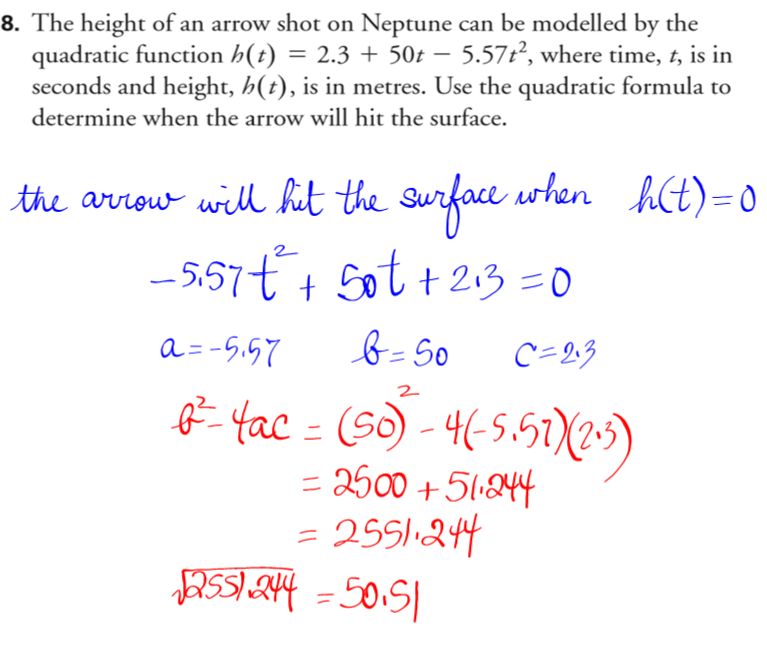 8. The height of an arrow shot on Neptune can be modelled by the
quadratic function h(t) = 2.3 + 50t − 5.57t², where time, t, is in
seconds and height, h(t), is in metres. Use the quadratic formula to
determine when the arrow will hit the surface.
the arrow will hit the surface when h(t)=0
-5.57t² + 50t + 2.3 = 0
a=-5.57 b=50 c=2.3
b²-4ac = (50)² - 4(-5.57)(2.3)
= 2500 + 51.244
= 2551.244
√2551.244 = 50.51